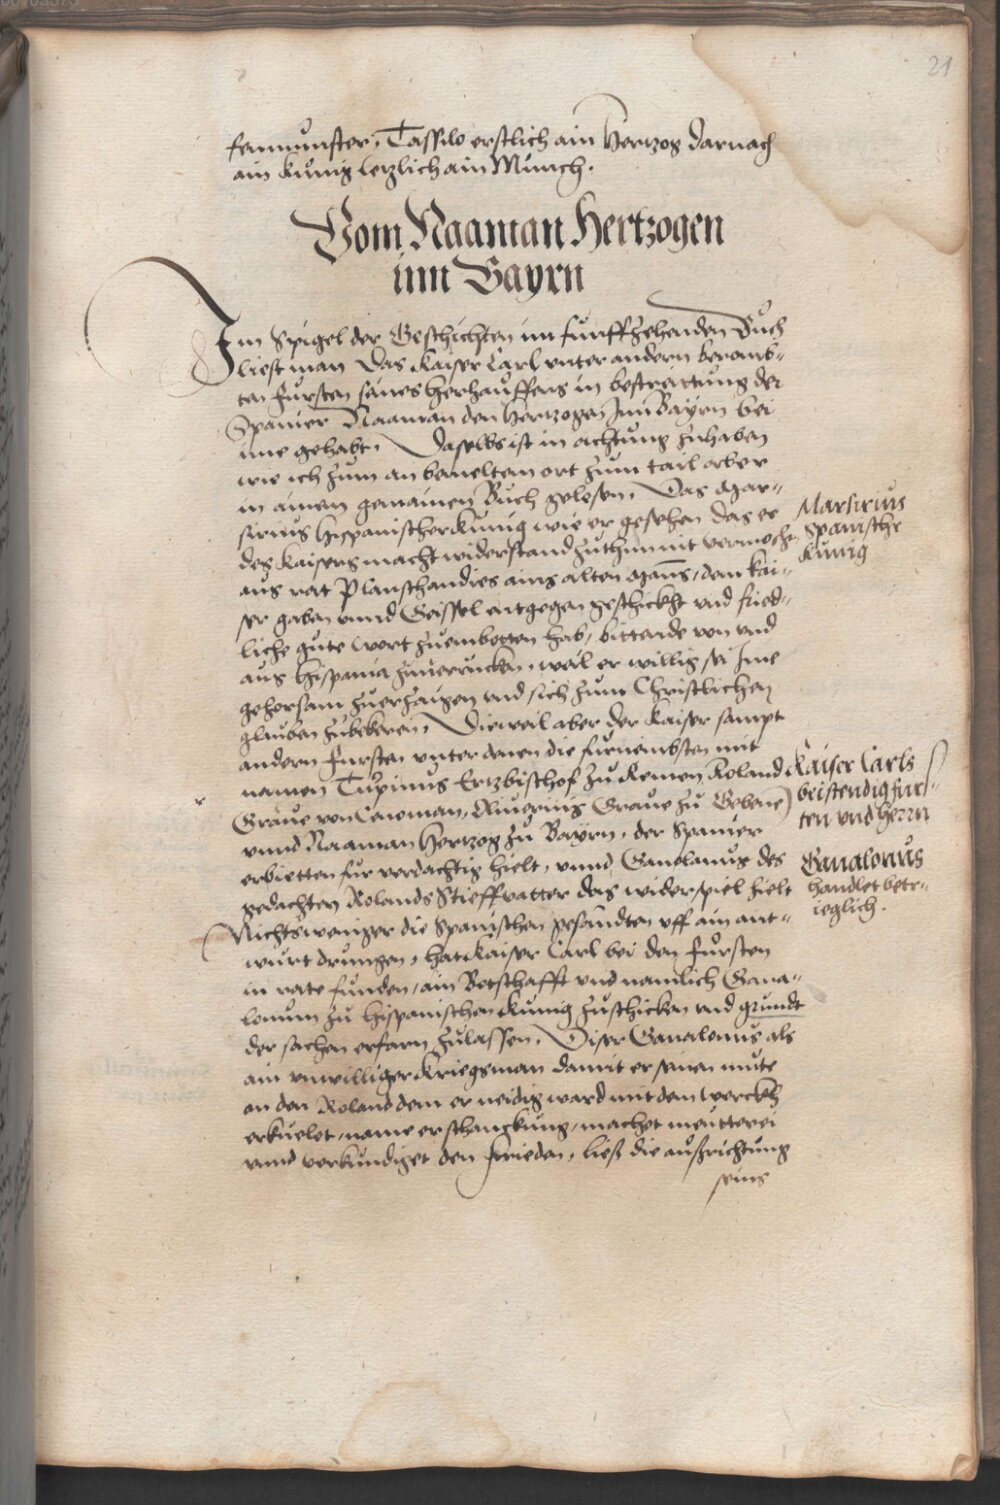 21
fenmunster, Tassilo erstlich ain Hertzog darnach
ain Kunig letzlich ain Münch.
Vom Naaman Hertzogen
inn Bayrn
Im Spigel der Geschichten im funffzehenden Buch
liest man das Kaiser Carl unter andern beramb-
ten Fursten seines Herhauffens in bestreittung der
Spanier Naaman den Hertzogen Inn Bayrn bei
ime gehabt. Daselbs ist in achtung zuhaben
wie ich zum an bemeltem ort zum tail aber
in ainem gemainen Buch gelesen, Das Mar-
sirius Hispanischer Kunig wie er gesehen das er
des Kaisers macht widerstand zuthun nit vermocht
aus rat Planschandies ains alten Mans, dem Kai-
ser gaben unnd Geissel entgegen geschickht und frid-
liche gute wort zuembotten hab, bittende von und
aus Hispania zuverrucken, weil er willig sei Ime
gehorsam zuerzaigen und sich zum Christlichen
glauben zubekeren. Dieweil aber der Kaiser sampt
andern Fursten unter denen die furnembsten mit
namen Tupinus Ertzbischof zu Remen Roland
Graue von Cenoman, Oliuerius Graue zu Gebene
unnd Naaman Hertzog zu Bayrn, der Spanier
erbietten fur verdachtig hielt, unnd Ganalonus des
gedachten Rolands Stieffvatter das widerspiel hielt
Nichtsweniger die Spanischen gesandten uff ain ant-
wurt drungen, hat Kaiser Carl bei den Fursten
in rate funden, ain Botschafft und namlich Gana-
lonum zu Hispanischen Kunig zuschicken und grundt
der sachen erfarn zulassen. Diser Ganalonus als
ain unwilliger Kriegsman damit er seinen mute
an den Roland dem er neidig ward mit dem werckh
erkuelet, name er schanckung, machet meutterei
unnd verkundiget den Frieden, ließ die außrichtung
seins
Marsirius
Spanischer
Kunig
Kaiser Carls
beistendig furs-
ten und Herrn
Ganalonus
handlet betr-
ieglich.